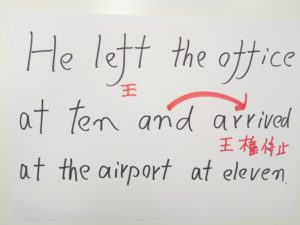 He left the office
王
at ten and arrived
王 停止
at the airport at eleven.